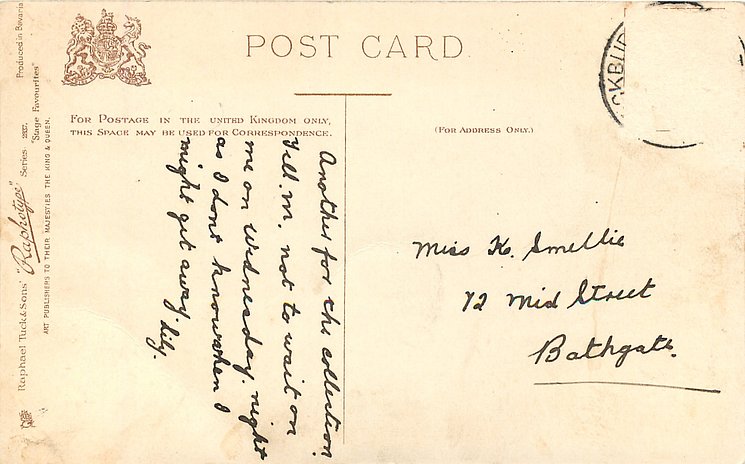 POST CARD
FOR POSTAGE IN THE UNITED KINGDOM ONLY,
THIS SPACE MAY BE USED FOR CORRESPONDENCE.
(FOR ADDRESS ONLY.)
Another for the collection.
Tell. M. not to wait on
me on Wednesday. night
as I dont know when I
might get away. Lily.
Miss K. Smellie
12 Mid Street
Bathgate.
Raphael Tuck & Sons' "Raphotype" Series 2337.
"Stage Favourites"
Produced in Bavaria
ART PUBLISHERS TO THEIR MAJESTIES THE KING & QUEEN.